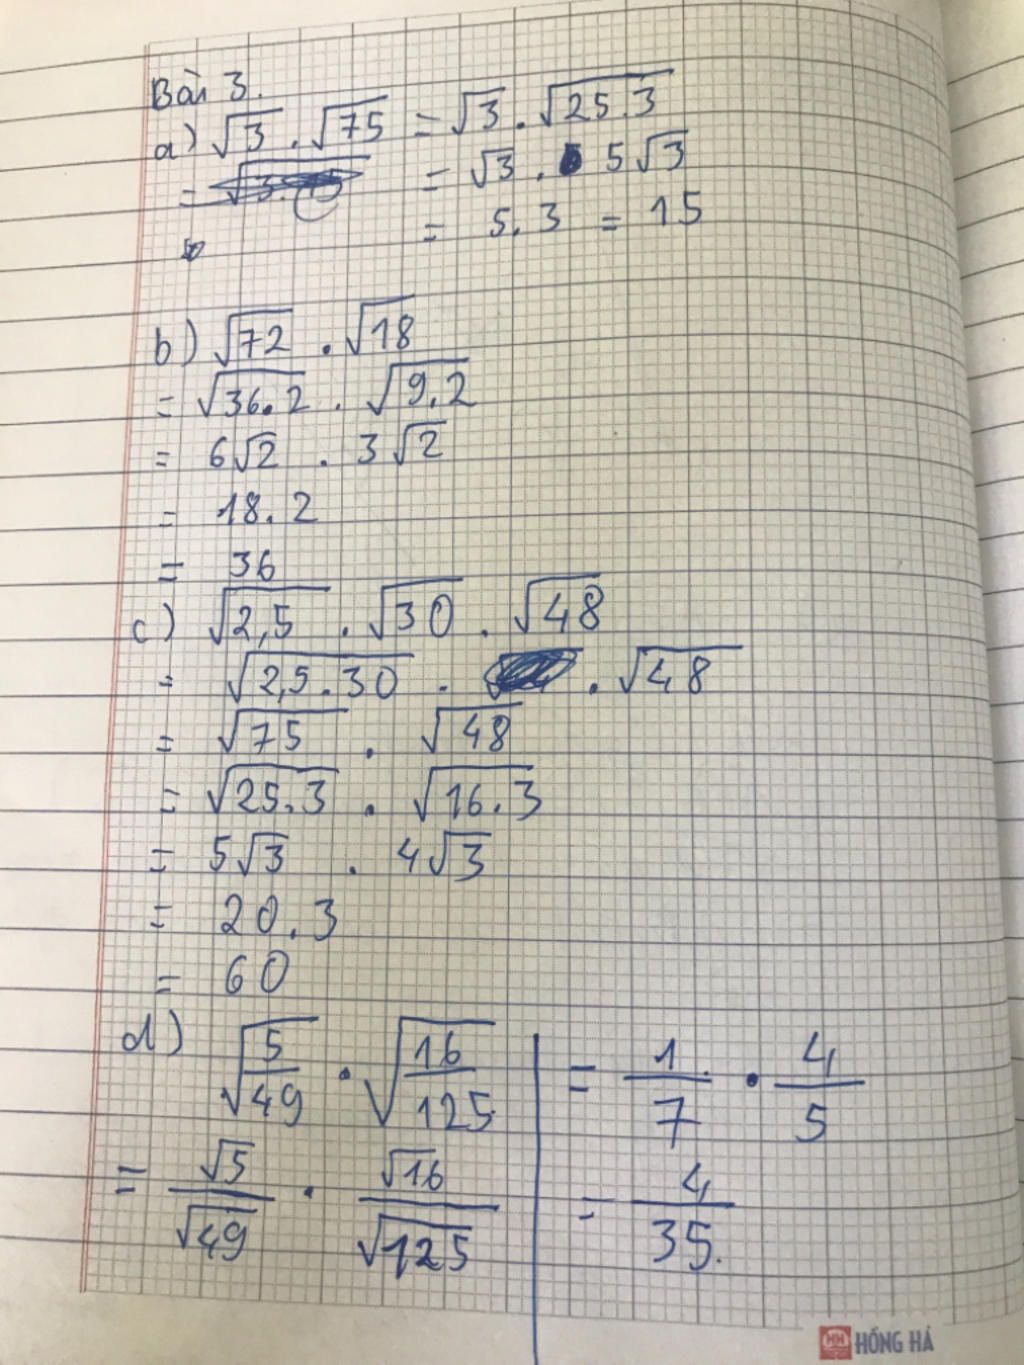 Bài 3.
a) √3 . √75 = √3 . √25.3
= √3 . 5√3
= 5.3 = 15
b) √72 . √18
= √36.2 . √9.2
= 6√2 . 3√2
= 18.2
= 36
c) √2,5 . √30 . √48
= √2,5.30 . . √48
= √75 . √48
= √25.3 . √16.3
= 5√3 . 4√3
= 20.3
= 60
d) √5/49 . √16/125
= √5/√49 . √16/√125
= 1/7 . 4/5
= 4/35.
HỒNG HÀ